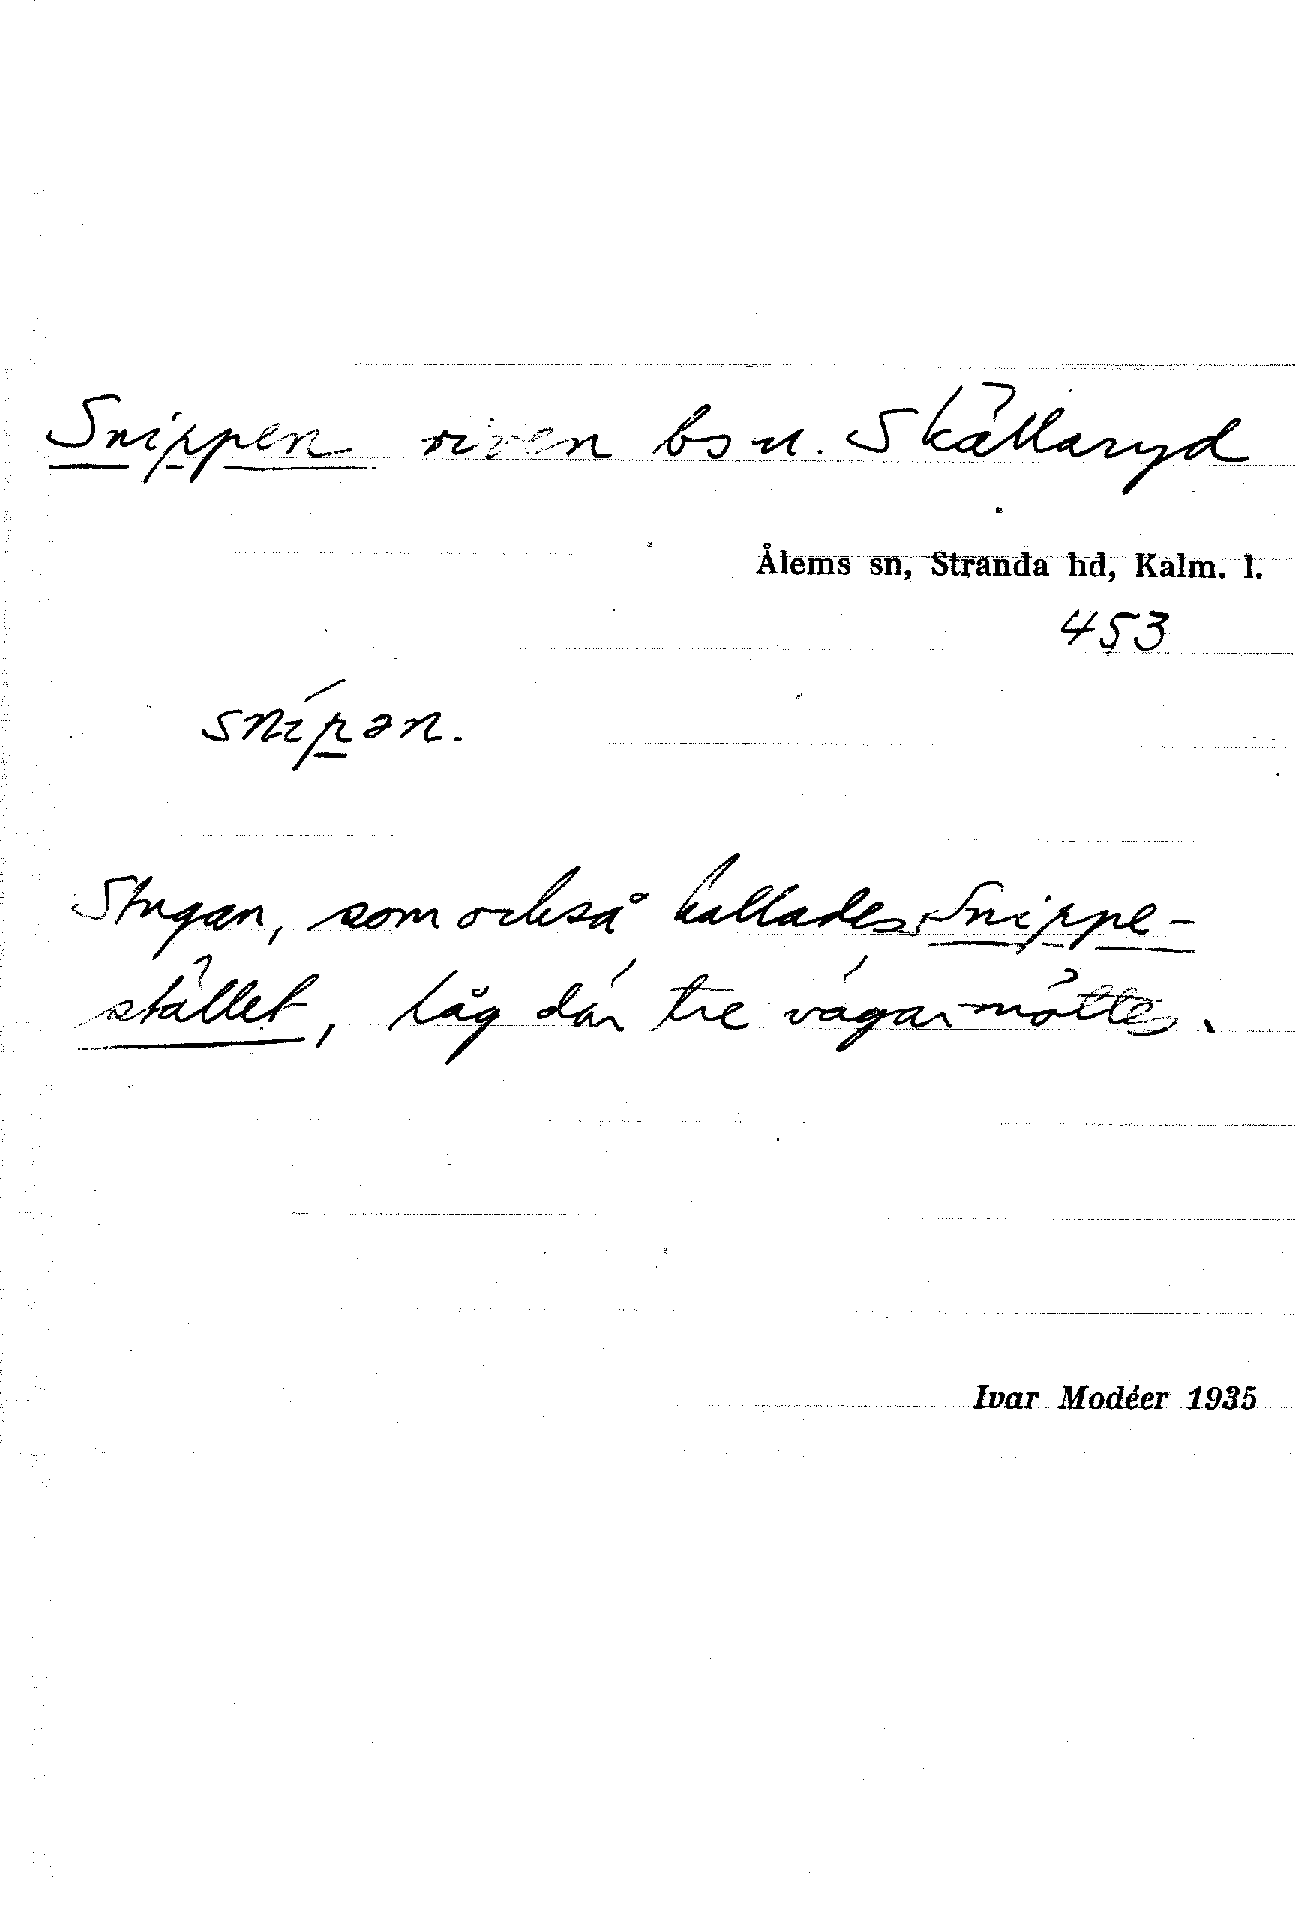 Snippen riven bs u. Skällaryd
Ålems sn, Stranda hd, Kalm. l.
453
snípən.
Stugan, som också kallades Snippe-
stället, låg där tre vägar möttes.
Ivar Modéer 1935